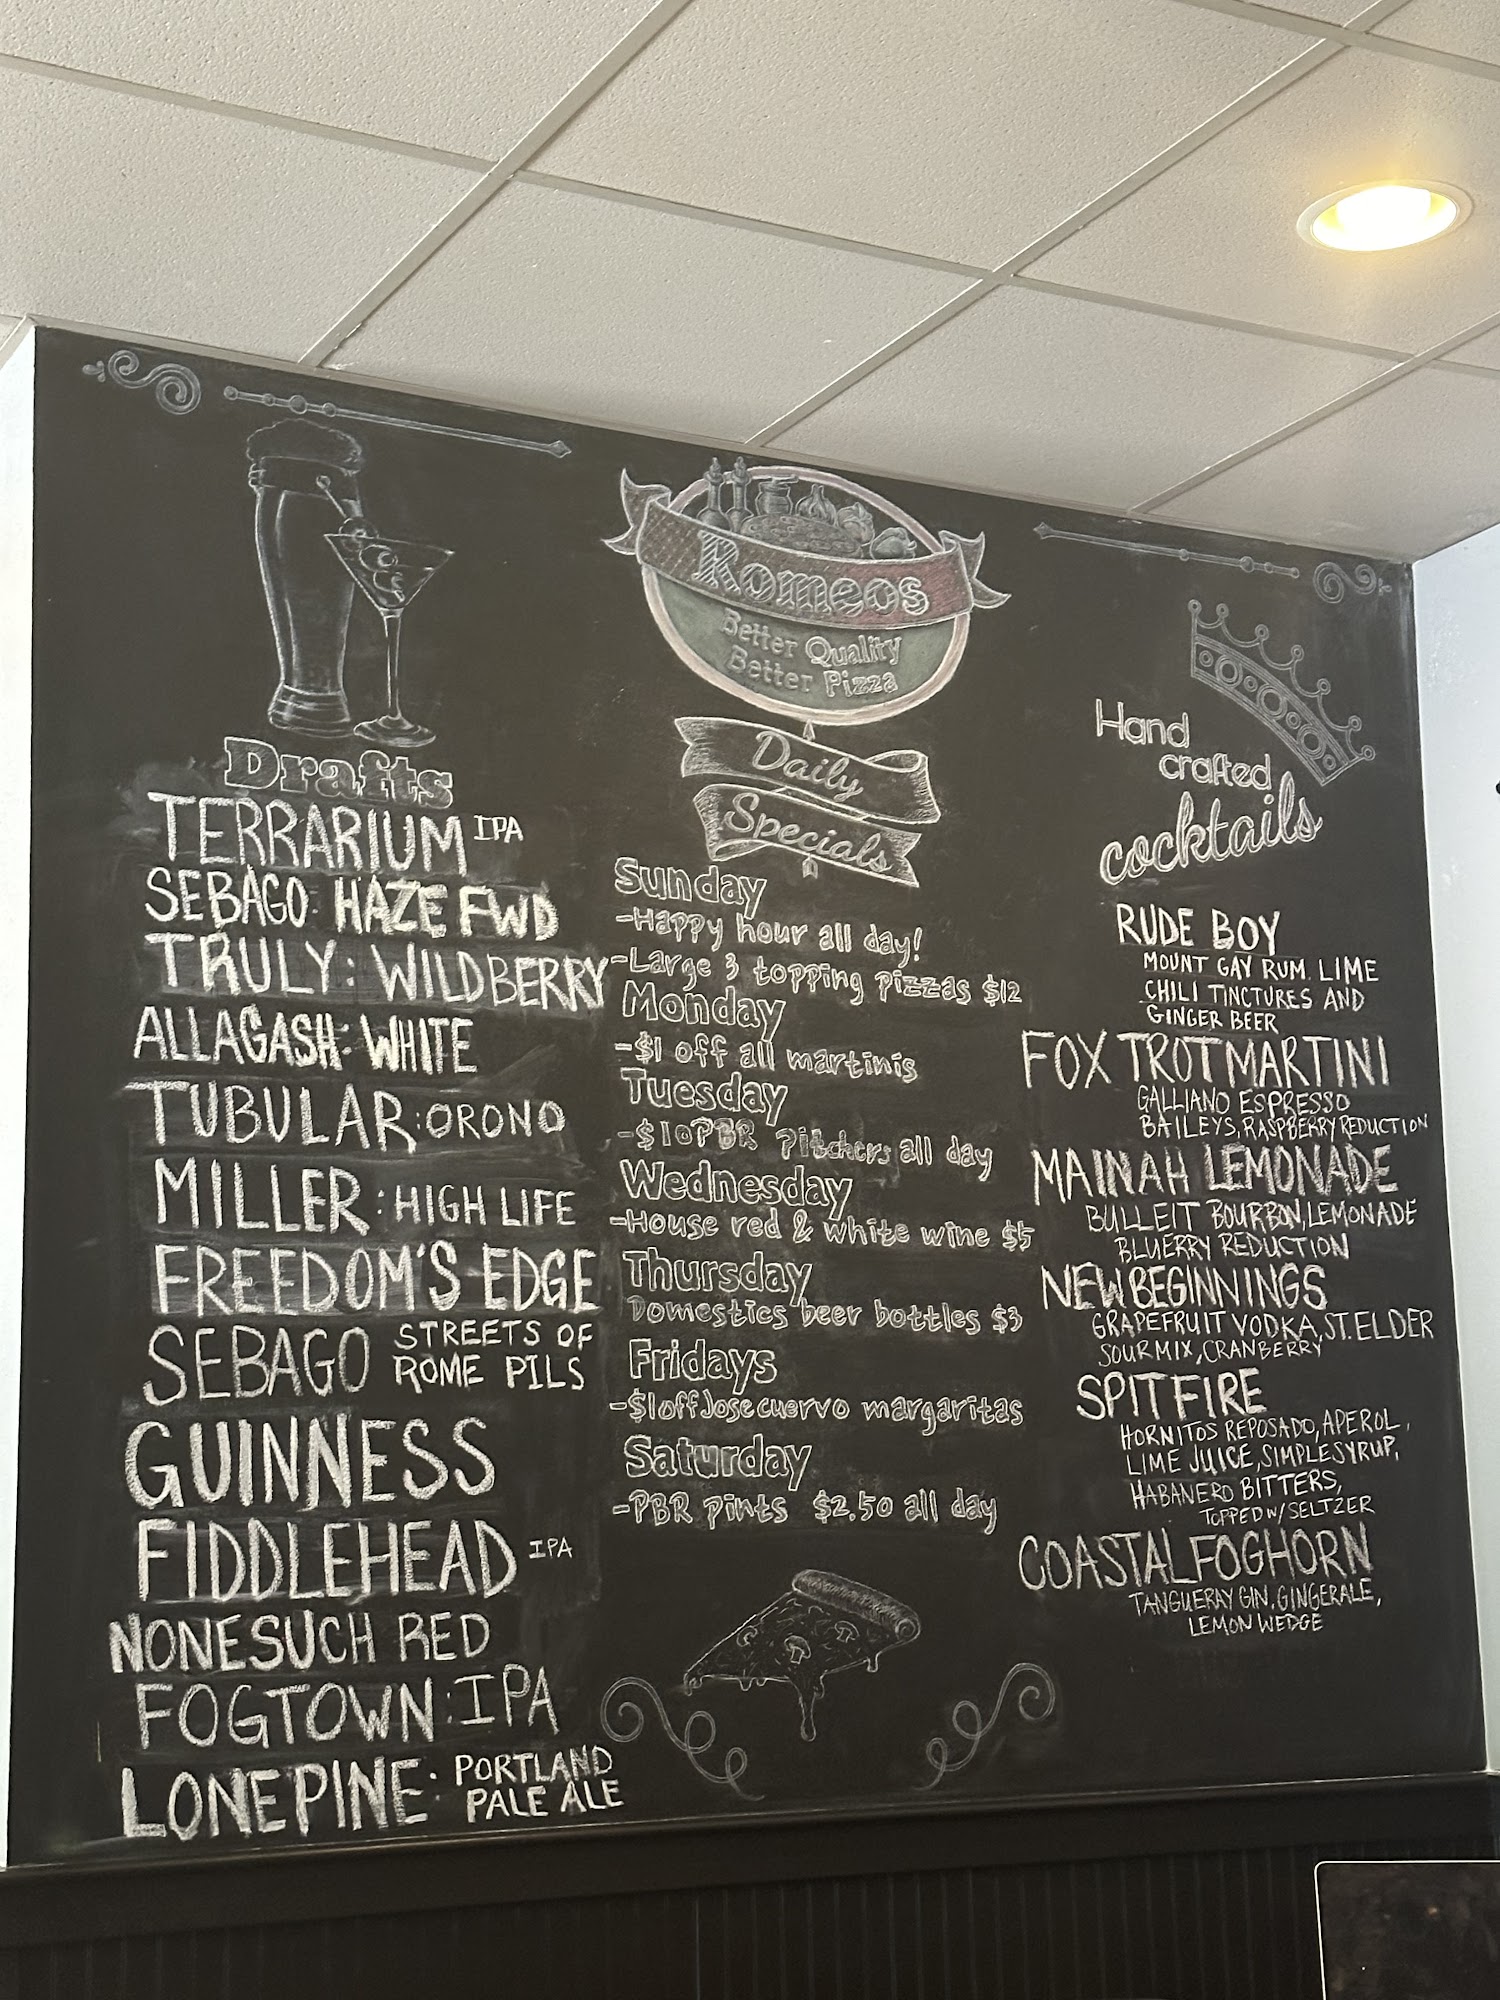 Romeos
Better Quality
Better Pizza
Drafts
TERRARIUM IPA
SEBAGO: HAZE FWD
TRULY: WILDBERRY
ALLAGASH: WHITE
TUBULAR: ORONO
MILLER: HIGH LIFE
FREEDOM'S EDGE
SEBAGO STREETS OF
ROME PILS
GUINNESS
FIDDLEHEAD IPA
NONESUCH RED
FOGTOWN: IPA
LONE PINE: PORTLAND
PALE ALE
Daily
Specials
Sunday
-Happy hour all day!
-Large 3 topping pizzas $12
Monday
-$1 off all martinis
Tuesday
-$10 PBR Pitchers all day
Wednesday
-House red & white wine $5
Thursday
Domestics beer bottles $3
Fridays
-$1 off Jose cuervo margaritas
Saturday
-PBR pints $2.50 all day
Hand
crafted
cocktails
RUDE BOY
MOUNT GAY RUM. LIME
CHILI TINCTURES AND
GINGER BEER
FOX TROT MARTINI
GALLIANO ESPRESSO
BAILEYS, RASPBERRY REDUCTION
MAINAH LEMONADE
BULLEIT BOURBON, LEMONADE
BLUERRY REDUCTION
NEW BEGINNINGS
GRAPEFRUIT VODKA, ST. ELDER
SOUR MIX, CRANBERRY
SPITFIRE
HORNITOS REPOSADO, APEROL,
LIME JUICE, SIMPLE SYRUP,
HABANERO BITTERS,
TOPPED W/ SELTZER
COASTAL FOGHORN
TANGUERAY GIN, GINGERALE,
LEMON WEDGE